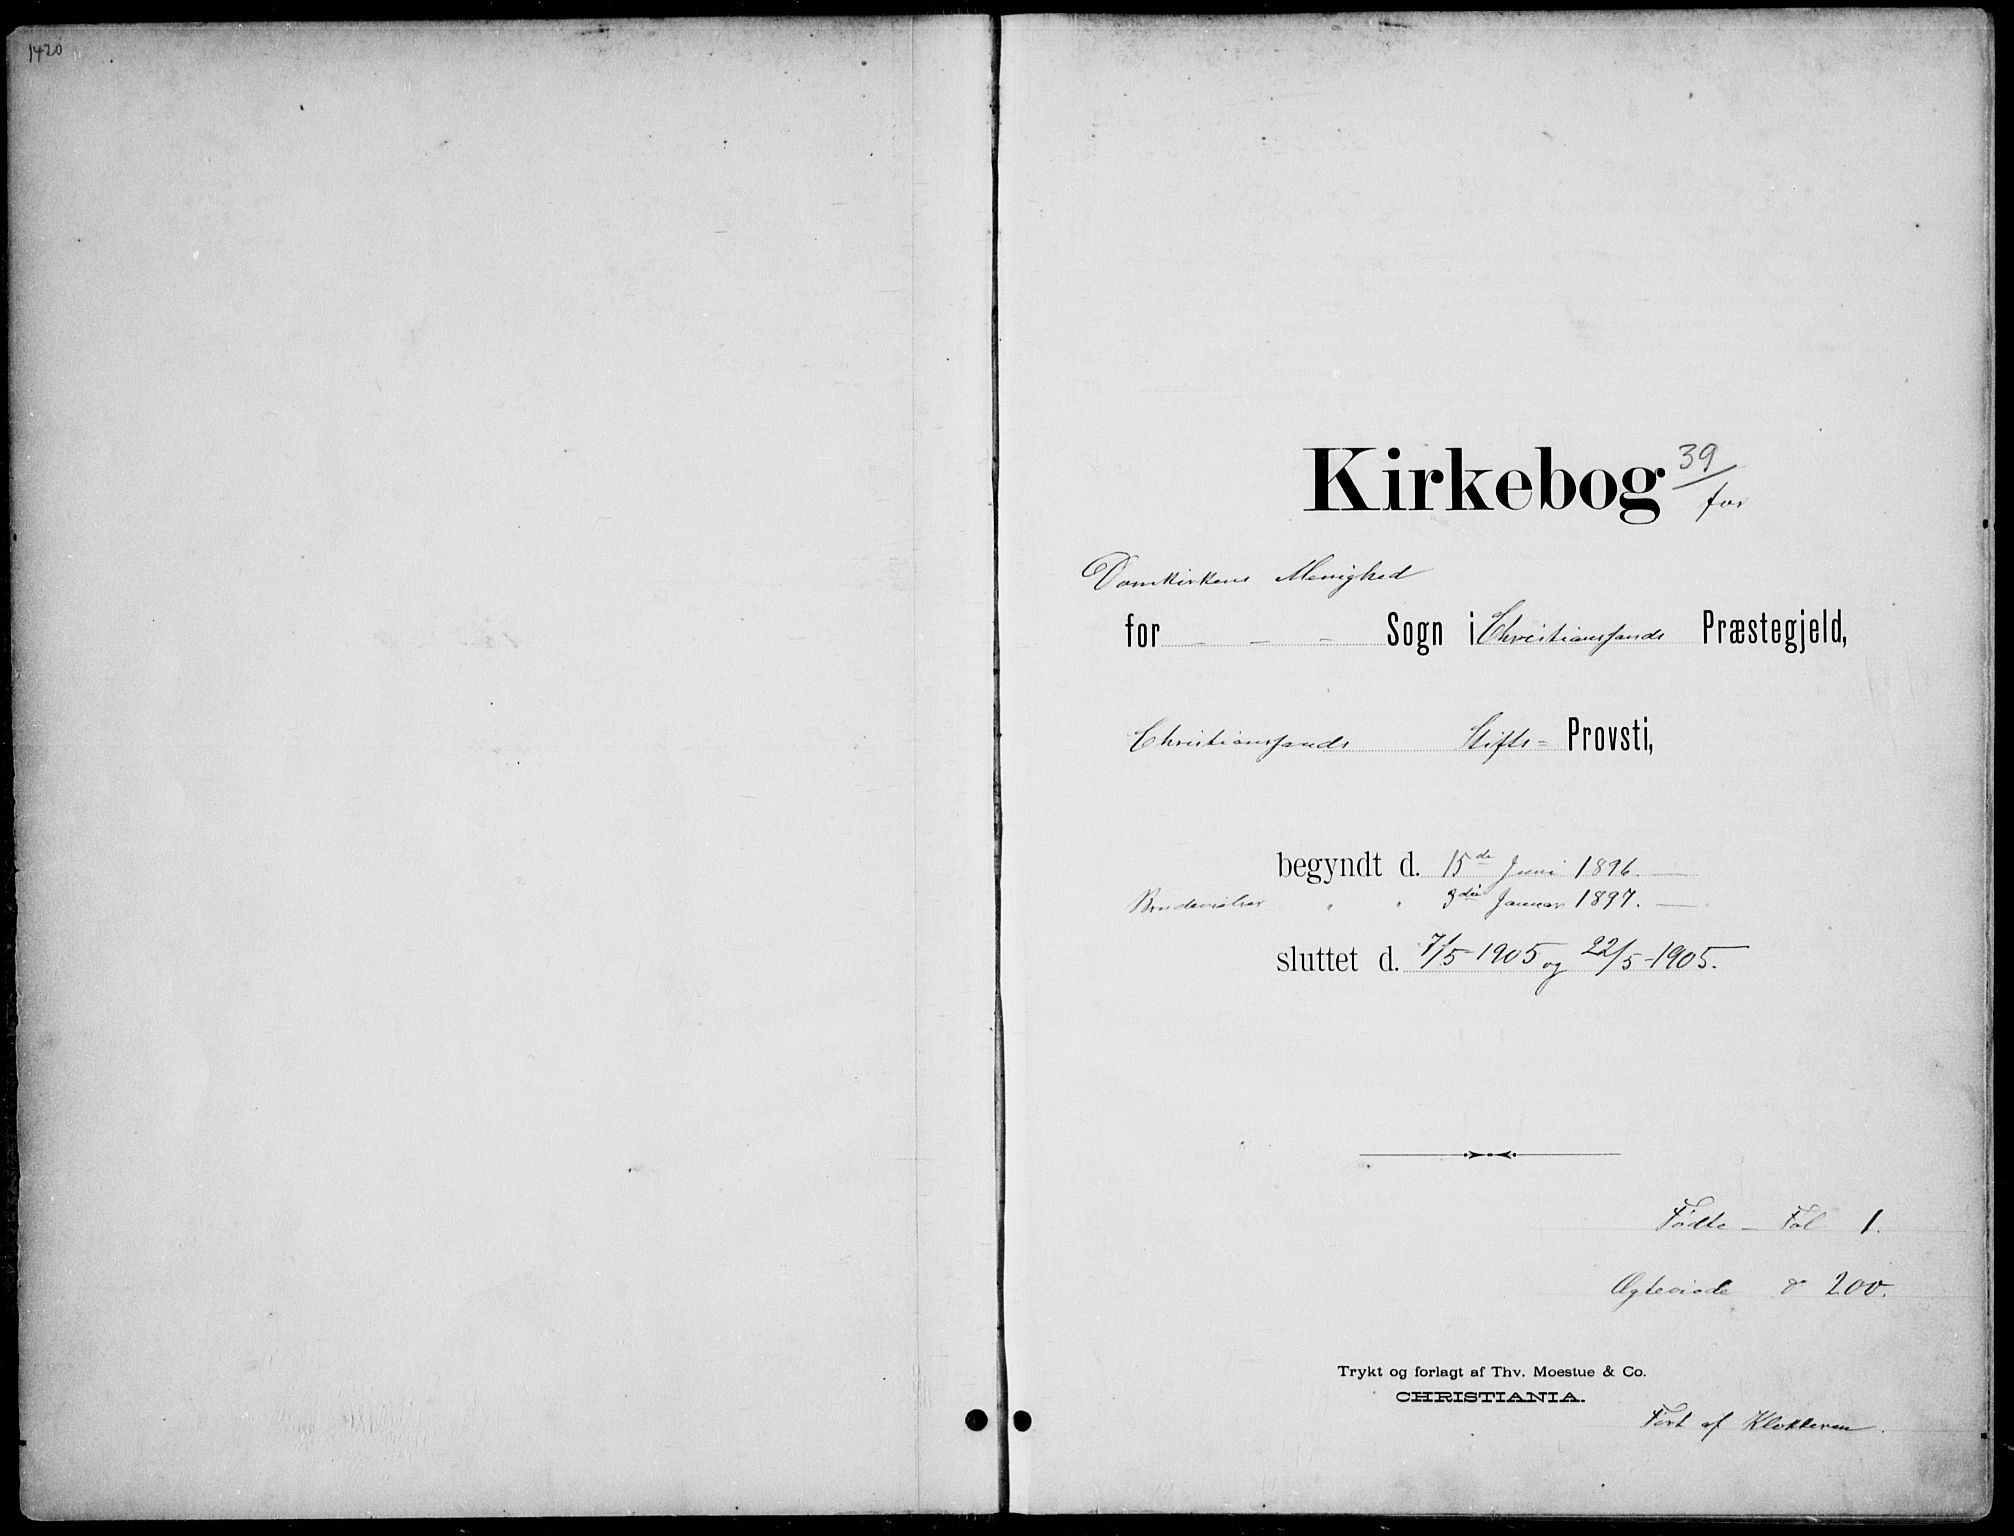 1420
Kirkebog 39/
for
Domkirkens Menighed
for - - - Sogn i Christianssands Præstegjeld,
Christianssands Stifts= Provsti,
begyndt d. 15de Juni 1896.
Brudevielser " " 3die Januar 1897.
sluttet d. 7/5-1905 og 22/5-1905.
Fødte - Fol 1.
Ægteviede do 200.
Trykt og forlagt af Thv. Moestue & Co.
CHRISTIANIA.
Ført af Klokkeren.